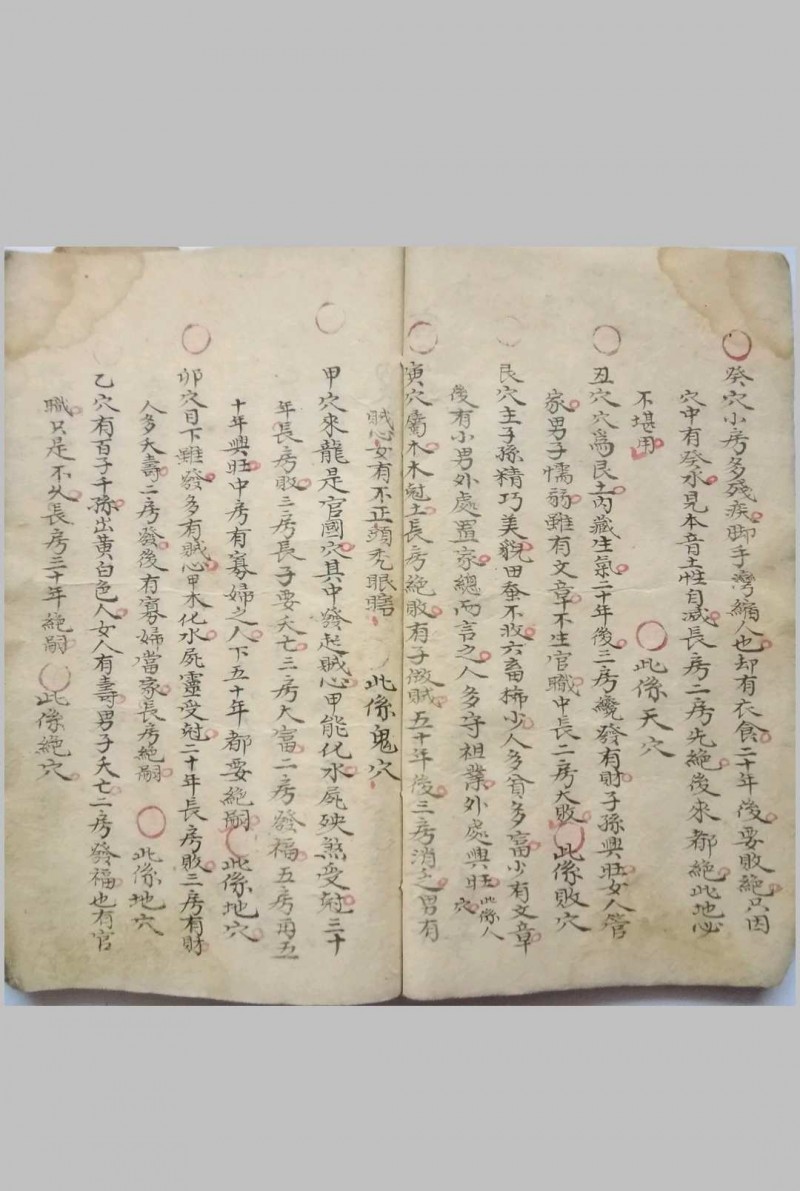 癸穴小房多殘疾脚手灣縮人也却有衣食二十年後要敗絕只因
穴中有癸水見本音土性自滅長房二房先絕後來都絕此地必
不堪用 此係天穴
丑穴穴為艮土內藏生氣二十年後三房纔發有財子孫興旺女人管
家男子懦弱雖有文章不生官職中長二房大敗 此係敗穴
艮穴主子孫精巧美貌田蚕不收六畜柿少人多貧多富少有文章
後有小男外處置家總而言之人多守祖業外處興旺 此係人穴
寅穴屬木木尅土長房絕敗有子做賊五十年後三房消之男有
賊心女有不正頭禿眼瞎 此係鬼穴
甲穴來龍是官國穴其中發起賊心甲能化水屍殃煞受尅三十
年長房敗三房長子要夭亡三房大富二房發福五房再五
十年興旺中房有寡婦之人下五十年都要絕嗣 此係地穴
卯穴目下雖發多有賊心甲木化水屍靈受尅二十年長房敗三房有財
人多夭壽二房發後有寡婦當家長房絕嗣 此係地穴
乙穴有百子千孫出黃白色人女人有壽男子夭亡二房發福也有官
職只是不久長房三十年絕嗣 此係絕穴